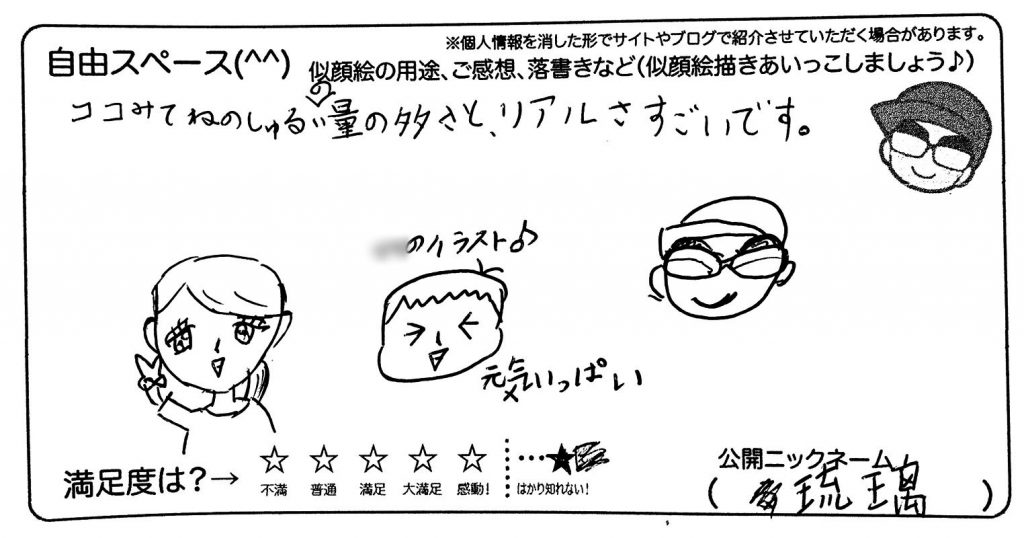 ※個人情報を消した形でサイトやブログで紹介させていただく場合があります。
自由スペース(^^) 似顔絵の用途、ご感想、落書きなど(似顔絵描きあいっこしましょう♪)
ココみてねのしゅるいの量の多さと、リアルさすごいです。
のイラスト♪
元気いっぱい
満足度は?→ ☆ ☆ ☆ ☆ ☆ …★
不満 普通 満足 大満足 感動! はかり知れない!
公開ニックネーム
( 琉璃 )